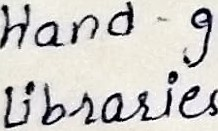 Hand - g
Libraries